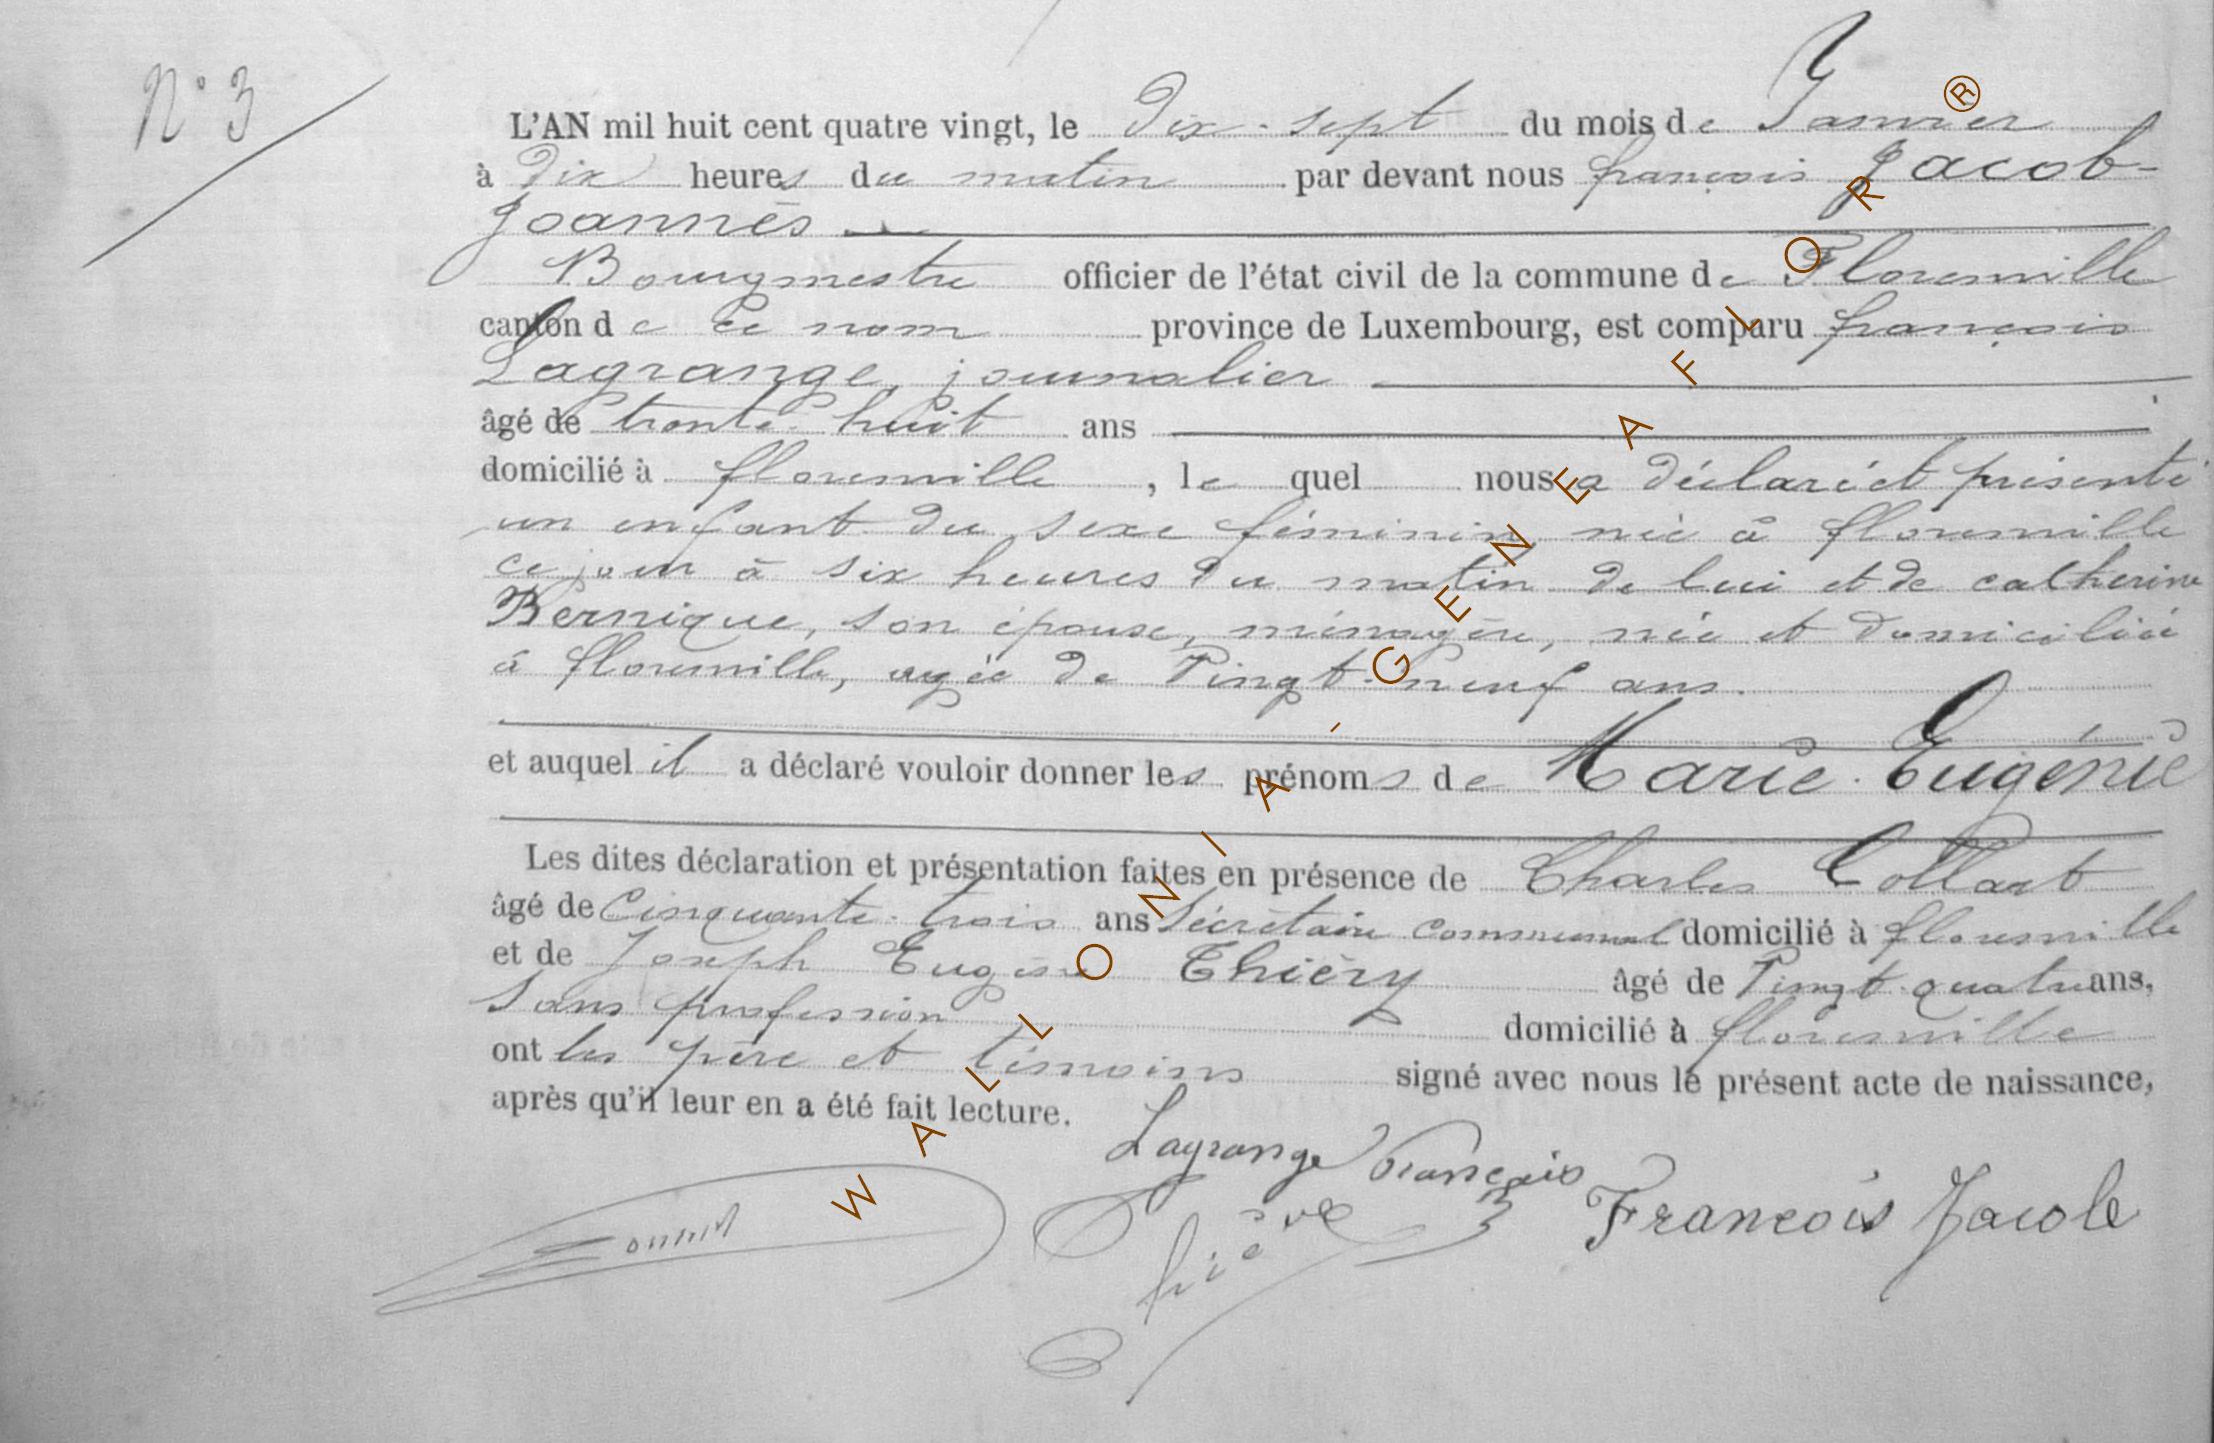 N° 3
L'AN mil huit cent quatre vingt, le Dix-sept du mois de Janvier
à Dix heures du matin par devant nous françois Jacob-
Joannès
Bourgmestre officier de l'état civil de la commune de Florenville
canton de ce nom province de Luxembourg, est comparu françois
Lagrange, journalier
âgé de trente-huit ans
domicilié à florenville, lequel nous a déclaré et présenté
un enfant du sexe féminin née à florenville
ce jour à six heures du matin de lui et de catherine
Bernique, son épouse, ménagère, née et domiciliée
à florenville, agée de Vingt-neuf ans.
et auquel il a déclaré vouloir donner les prénoms de Marie-Eugénie
Les dites déclaration et présentation faites en présence de Charles Collart
âgé de Cinquante-trois ans Sécrétaire communal domicilié à florenville
et de Joseph Eugène Thiéry âgé de Vingt-quatre ans,
sans profession domicilié à florenville
ont les père et témoins signé avec nous le présent acte de naissance,
après qu'il leur en a été fait lecture.
Lagrange François
François Jacob
WALLONIA - GENEAFLOR ®